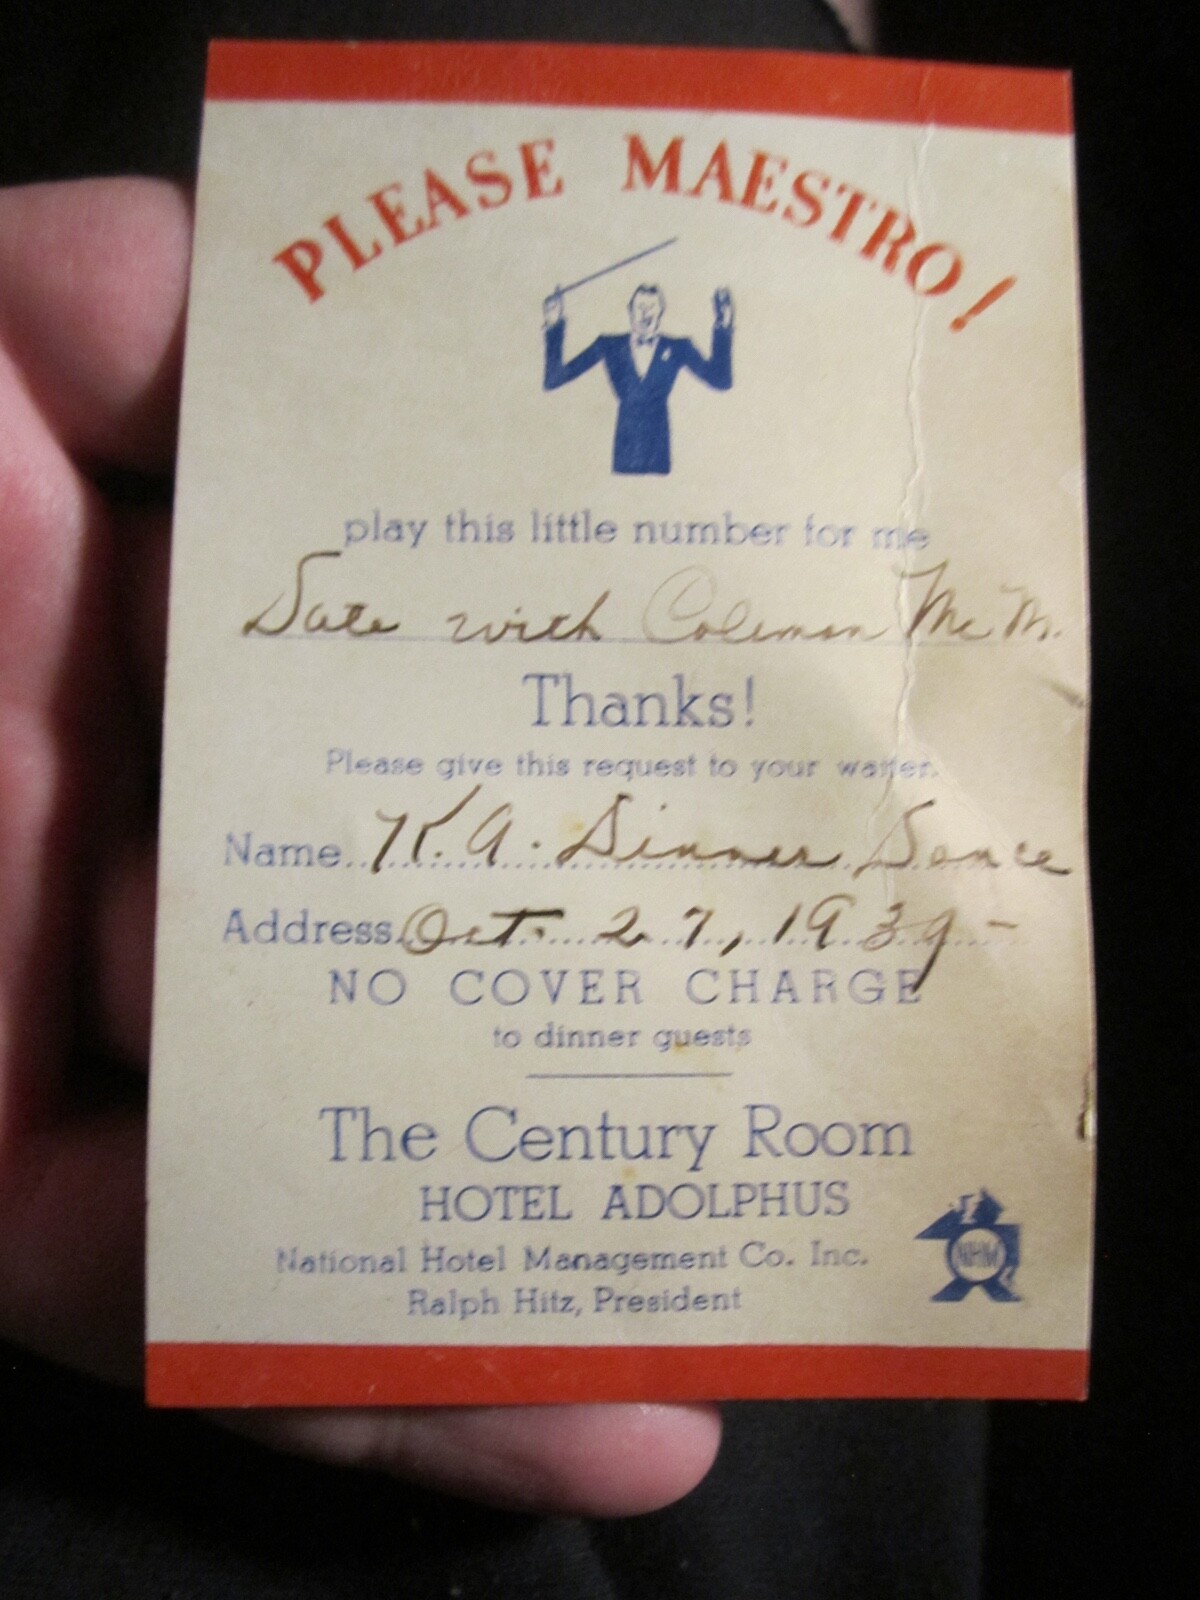 PLEASE MAESTRO!
play this little number for me
Date with Coleman McM.
Thanks!
Please give this request to your waiter.
Name K.A. Dinner Dance
Address Oct. 27, 1939-
NO COVER CHARGE
to dinner guests
The Century Room
HOTEL ADOLPHUS
National Hotel Management Co. Inc.
Ralph Hitz, President
NHM